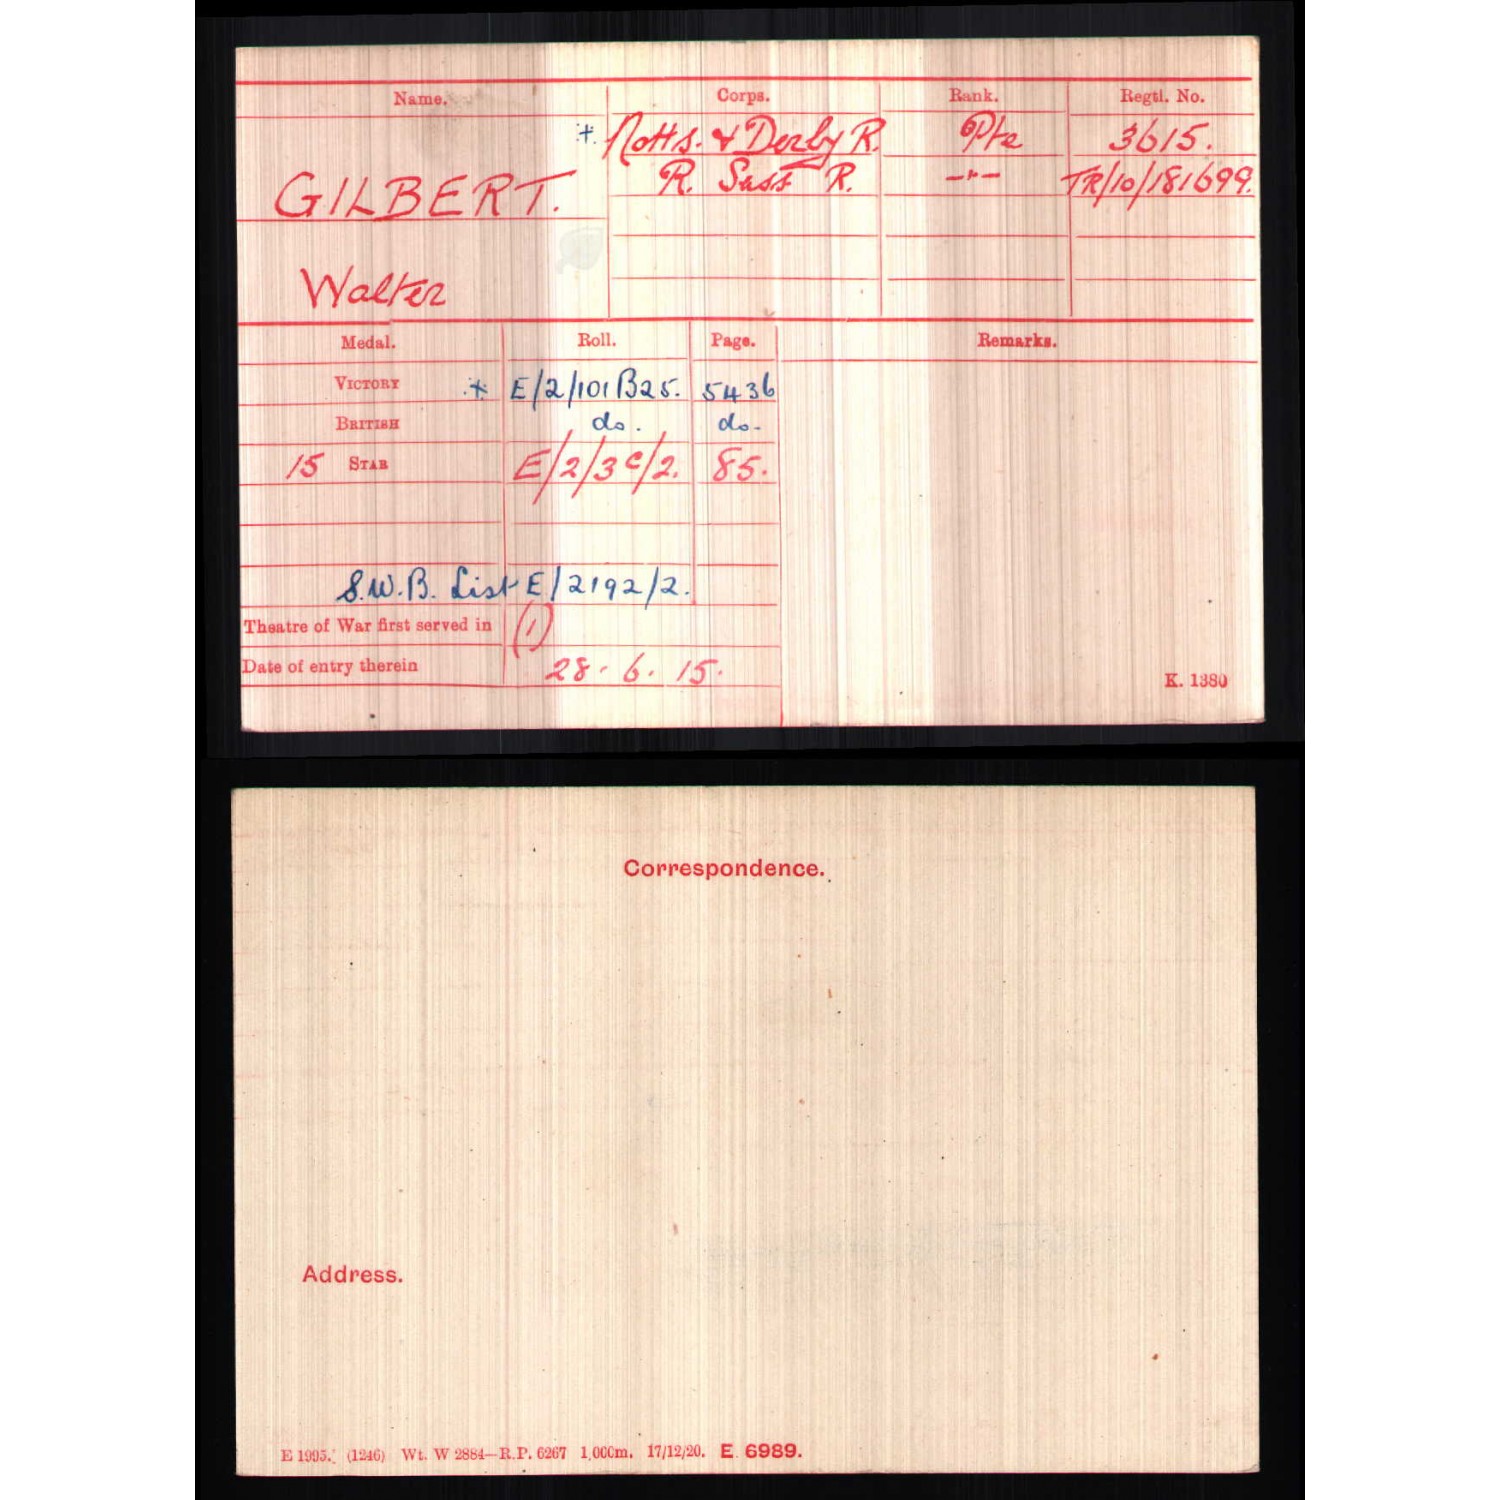 Name. Corps. Rank. Regtl. No.
+. Notts. & Derby R. Pte 3615.
GILBERT. R. Suss R. —"— TR/10/181699.
Walter
Medal. Roll. Page. Remarks.
VICTORY + E/2/101B25. 5436
BRITISH do. do.
15 STAR E/2/3c/2. 85.
S.W.B. List E/2192/2.
Theatre of War first served in (1)
Date of entry therein 28. 6. 15.
K. 1380
Correspondence.
Address.
E 1995. (1246) Wt. W 2884—R.P. 6267 1,000m. 17/12/20. E. 6989.